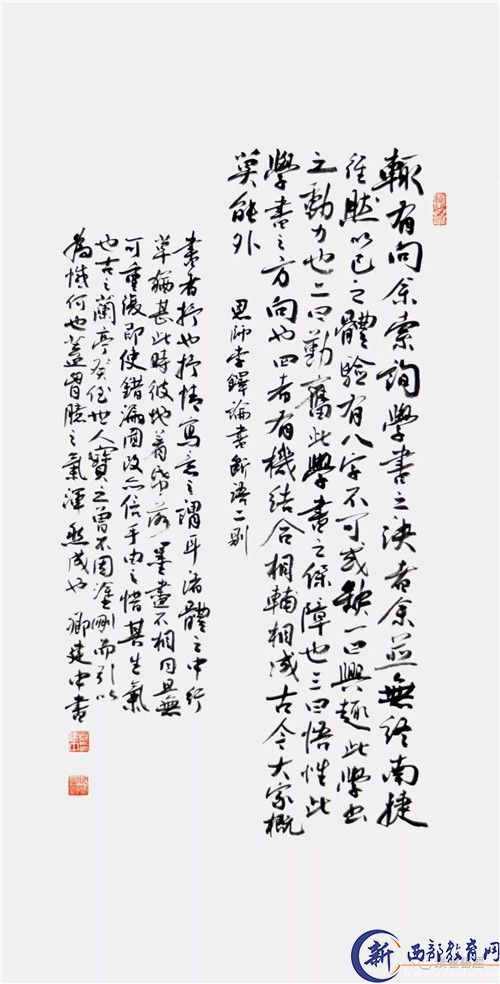 輒有向余索詢學書之決者余並無終南捷
徑然以己之體驗有八字不可或缺一曰興趣此學書
之動力也二曰勤奮此學書之保障也三曰悟性此
學書之方向也四者有機結合相輔相成古今大家概
莫能外 恩師李鐸論書斷語二則
書者抒也抒情寫意之謂耳諸體之中行
草猶甚此時彼地著紙落墨盡不相同且無
可重復即使錯漏圈改亦信手由之惜其生氣
也古之蘭亭祭侄世人寶之曾不因塗刪而引以
為憾何也蓋胸臆之氣渾然成也 卿建中書
新 西部教育网